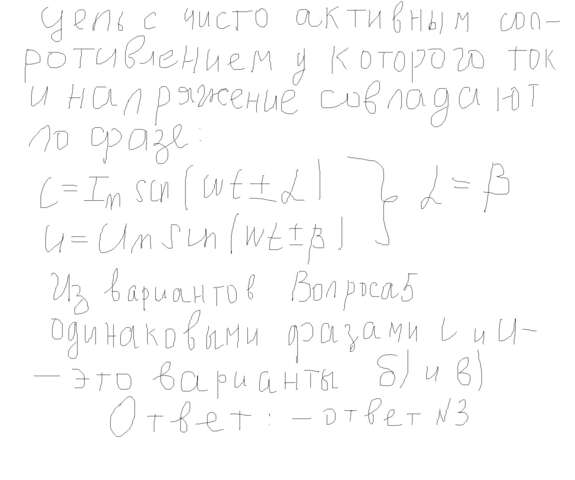 цепь с чисто активным соп-
ротивлением у которого ток
и напряжение совпадают
по фазе:
i = Im sin (wt ± α) } α = β
u = Um sin (wt ± β)
Из вариантов Вопроса 5
одинаковыми фазами i и U-
- это варианты б) и в)
Ответ: - ответ N3